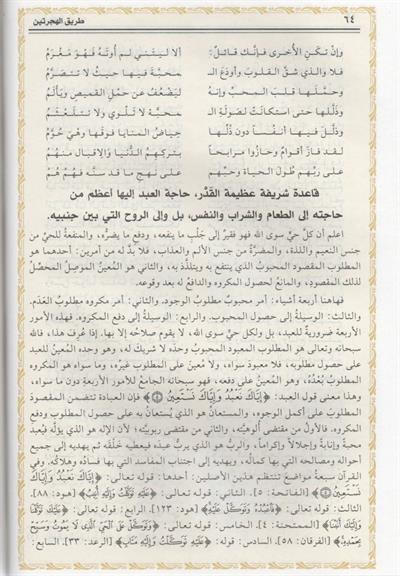 ٦٤
طريق الهجرتين
وإنْ تكَنِ الأُخرى فإنَّك قائلٌ: ألا ليتَني لم أُوتَهُ فهُوَ مَغْرَمُ
فلا والذي شقَّ القلوبَ وأودَعَ الـ محبَّةَ فيها حيثُ لا تتصرَّمُ
وحمَّلَها قلبَ المحبِّ وإنهُ ليَضعُفُ عن حمْلِ القميصِ ويَألَمُ
وذلَّلها حتى استكانَتْ لصَولةِ الـ محبَّةِ لا تَلْوي ولا تتلعثَمُ
وذلَّلَ فيها أنفُساً دونَ ذُلِّها حِياضُ المنايا فوقَها وهيَ حُوَّمُ
لقد فازَ أقوامٌ وحازُوا مرابحاً بتركِهِمُ الدُّنيا والاقبالِ منهُمُ
على ربِّهم طُولَ الحياةِ وحبِّهم على نهْجِ ما قد سنَّه فَهُمُ هُمُ
قاعدة شريفة عظيمة القَدْر، حاجة العبد إليها أعظم من
حاجته إلى الطعام والشراب والنفس، بل وإلى الروح التي بين جنبيه.
اعلم أن كلَّ حيٍّ سوى الله فهو فقيرٌ إلى جَلْب ما ينفعه، ودفعِ ما يضرُّه، والمنفعةُ للحيِّ من
جنس النعيم واللذة، والمضرَّةُ من جنس الألم والعذاب، فلا بدَّ له من أمرين: أحدهما هو
المطلوب المقصود المحبوبُ الذي ينتفع به ويتلذَّذ به، والثاني هو المُعينُ الموصلُ المحصِّلُ
لذلك المقصودِ، والمانعُ لحصول المكروه والدافعُ له بعد وقوعه.
فهاهنا أربعة أشياء: أمر محبوبٌ مطلوبُ الوجود. والثاني: أمر مكروه مطلوبُ العَدَم.
والثالث: الوسيلة إلى حصول المحبوب. والرابع: الوسيلةُ إلى دفع المكروه. فهذه الأمور
الأربعة ضرورية للعبد، بل ولكل حيٍّ سوى الله، لا يقوم صلاحُه إلا بها. إذا عُرفَ هذا، فاللهُ
سبحانه وتعالى هو المطلوب المعبود المحبوبُ وحدَه لا شريك له، وهو وحده المُعينُ للعبد
على حصول مطلوبه، فلا معبودَ سواه، ولا مُعينَ على المطلوب غيرُه، وما سواه هو المكروه
المطلوبُ بُعْدُهُ، وهو المُعينُ على دفعه، فهو سبحانه الجامعُ للأمور الأربعة دون ما سواه،
وهذا معنى قول العبد: ﴿إِيَّاكَ نَعْبُدُ وَإِيَّاكَ نَسْتَعِينُ﴾ فإن العبادة تتضمن المقصودَ
المطلوبَ على أكمل الوجوه، والمستعانُ هو الذي يُستعانُ به على حصول المطلوب ودفع
المكروه. فالأول من مقتضى أُلوهيَّته، والثاني من مقتضى ربوبيَّته؛ لأن الإله هو الذي يؤلَّه فيُعبدُ
محبةً وإنابةً وإجلالاً وإكراماً، والربُّ هو الذي يربُّ عبدَه فيعطيه خَلْقَه ثم يهديه إلى جميع
أحواله ومصالحه التي بها كمالُه، ويهديه إلى اجتناب المفاسد التي بها فسادُه وهلاكُه. وفي
القرآن سبعةُ مواضعَ تنتظم هذين الأصلين: أحدها: قوله تعالى: ﴿إِيَّاكَ نَعْبُدُ وَإِيَّاكَ
نَسْتَعِينُ﴾ [الفاتحة: ٥]. الثاني: قوله تعالى: ﴿عَلَيْهِ تَوَكَّلْتُ وَإِلَيْهِ أُنِيبُ﴾ [هود: ٨٨].
الثالث: قوله تعالى: ﴿فَاعْبُدْهُ وَتَوَكَّلْ عَلَيْهِ﴾ [هود: ١٢٣]. الرابع: قوله تعالى: ﴿عَلَيْكَ تَوَكَّلْنَا
وَإِلَيْكَ أَنَبْنَا﴾ [الممتحنة: ٤]. الخامس: قوله تعالى: ﴿وَتَوَكَّلْ عَلَى الْحَيِّ الَّذِي لَا يَمُوتُ وَسَبِّحْ
بِحَمْدِهِ﴾ [الفرقان: ٥٨]. السادس: قوله: ﴿عَلَيْهِ تَوَكَّلْتُ وَإِلَيْهِ مَتَابِ﴾ [الرعد: ٣٣]. السابع: